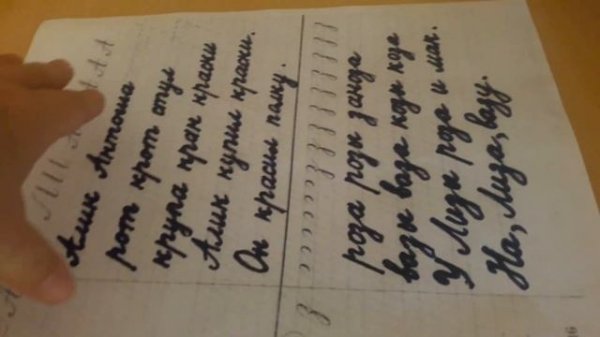 Алик Антоша
рот крот стул
крупа кран краски
Алик купил краски.
Он красил
роза розы
вазы ваза козы коза
У Лизы роза и мак.
На, Лиза, вазу.